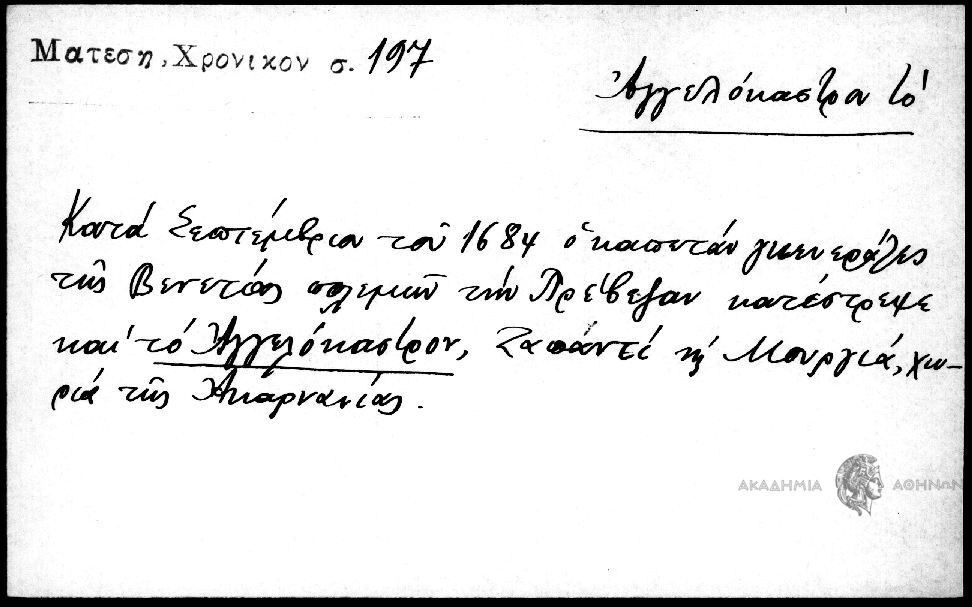 Ματεση, Χρονικον σ. 197
Ἀγγελόκαστρον τό
Κατά Σεπτέμβριον τοῦ 1684 ὁ καπετάν γκενεράλες
τῆς Βενετίας πολεμῶν τήν Πρέβεζαν κατέστρεψε
καί τό Ἀγγελόκαστρον, Ζαπάντι κ Μουργιά, χω-
ριά τῆς Ἀκαρνανίας.
ΑΚΑΔΗΜΙΑ ΑΘΗΝΩΝ